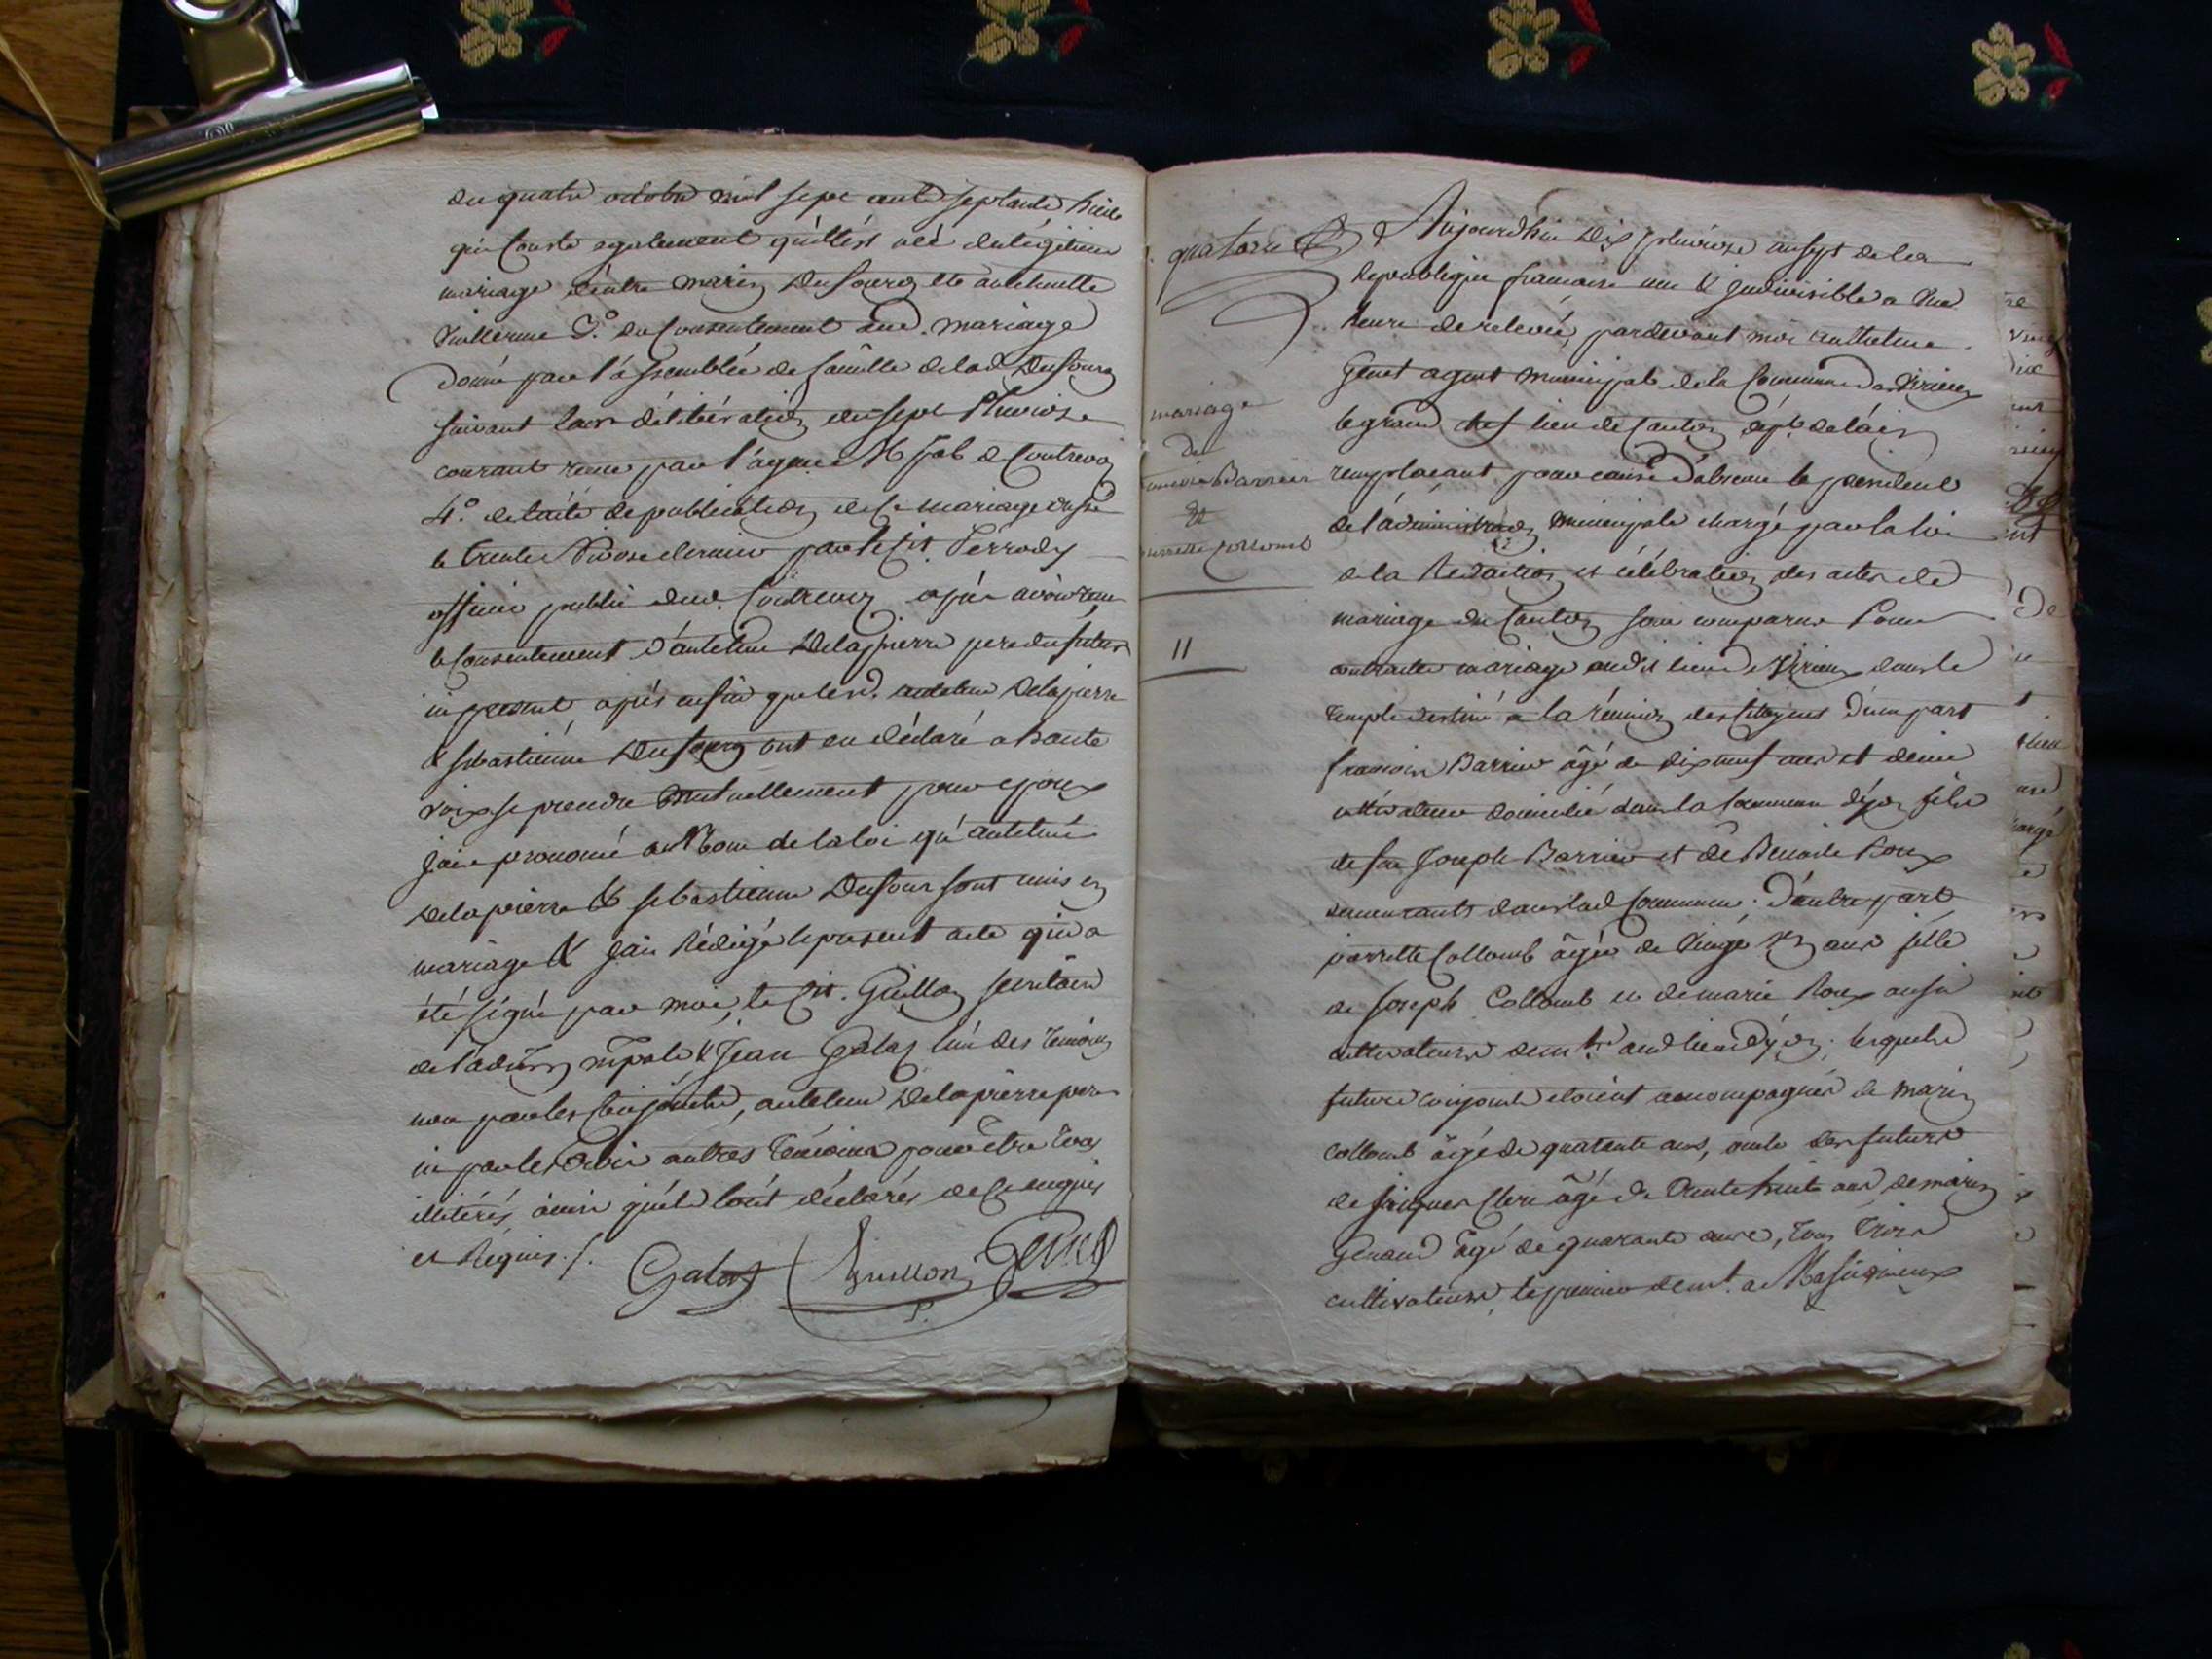 du quatre octobre mil sept cent septante huit
qui Conste egalement qu'elle est née du légitime
mariage d'entre marin Dufour et antelmette
Vuillerme 3.° du Consentement aud. mariage
donné par l'assemblée de famille de lad Dufour
suivant leur délibération du sept Pluviose
courant recue par l'agent Mpal de Contrevoz
4.° de l'acte de publication de ce mariage
le trente Nivose dernier par le Cit. Perrody
officier public dud. Contrevoz après avoir recu
le Consentement d'antelme Delapierre pere du futur
ici present, après enfin que lesd. antelme Delapierre
& sebastienne Dufour ont eu déclaré a haute
voix se prendre mutuellement pour epoux
J'ai prononcé au Nom de la loi qu'antelme
Delapierre & sebastienne Dufour sont unis en
mariage & J'ai Rédigé le present acte qui a
été signé par moi, le Cit. Guillon secrétaire
de l'admon mpale & Jean Galay l'un des temoins
non par les Conjoints, antelme Delapierre pere
ni par les trois autres temoins pour être tous
illiterés, ainsi qu'ils l'ont déclarés de ce enquis
et Réquis ./.
Galay Guillon Genet
quatorze
Aujourdhui dix pluviose an sept de la
Republique francaise une & indivisible a une
heure de relevée, pardevant moi anthelme
Genet agent municipal de la Commune de Virieux
le grand chef lieu de Canton dépt. de l'ain
remplaçant pour cause d'absence le president
de l'administration municipale chargé par la loi
de la Redaction et célébration des actes de
mariage du Canton sont comparus Pour
contracter mariage aud it lieu de Virieux dans le
temple destiné a la réunion des Citoyens d'une part
francois Barrier âgé de dix neuf ans et demie
cultivateur domicilié dans la Commune d'yon fils
de feu Joseph Barrier et de Benoite Roux
demeurants dans lad Commune. D'autre part
pierrette Collomb âgée de vingt un ans fille
de Joseph Collomb et de marie Roux aussi
cultivateurs demts aud lieu d'yon; lesquels
futurs conjoints etoient accompagnés de marin
Collomb âgé de quarante ans, oncle des futurs
de Jacques Clerc âgé de trente huit ans, de marin
Genand âgé de quarante ans, tous trois
cultivateurs, le premier demt. a
mariage
de
francois Barrier
Et
pierrette Collomb
11